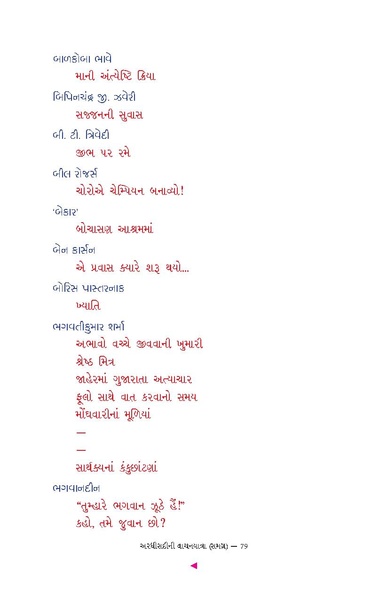 બાળકોબા ભાવે
માની અંત્યેષ્ટિ ક્રિયા
બિપિનચંદ્ર જી. ઝવેરી
સજ્જનની સુવાસ
બી. ટી. ત્રિવેદી
જીભ પર રમે
બીલ રોજર્સ
ચોરોએ ચેમ્પિયન બનાવ્યો!
‘બેકાર’
બોચાસણ આશ્રમમાં
બેન કાર્સન
એ પ્રવાસ ક્યારે શરૂ થયો…
બોરિસ પાસ્તરનાક
ખ્યાતિ
ભગવતીકુમાર શર્મા
અભાવો વચ્ચે જીવવાની ખુમારી
શ્રેષ્ઠ મિત્ર
જાહેરમાં ગુજારાતા અત્યાચાર
ફૂલો સાથે વાત કરવાનો સમય
મોંઘવારીનાં મૂળિયાં
—
—
સાર્થક્યનાં કંકુછાંટણાં
ભગવાનદીન
“તુમ્હારે ભગવાન ઝૂઠે હૈં!”
કહો, તમે જુવાન છો?
અરધીસદીની વાચનયાત્રા (સમગ્ર) — 79